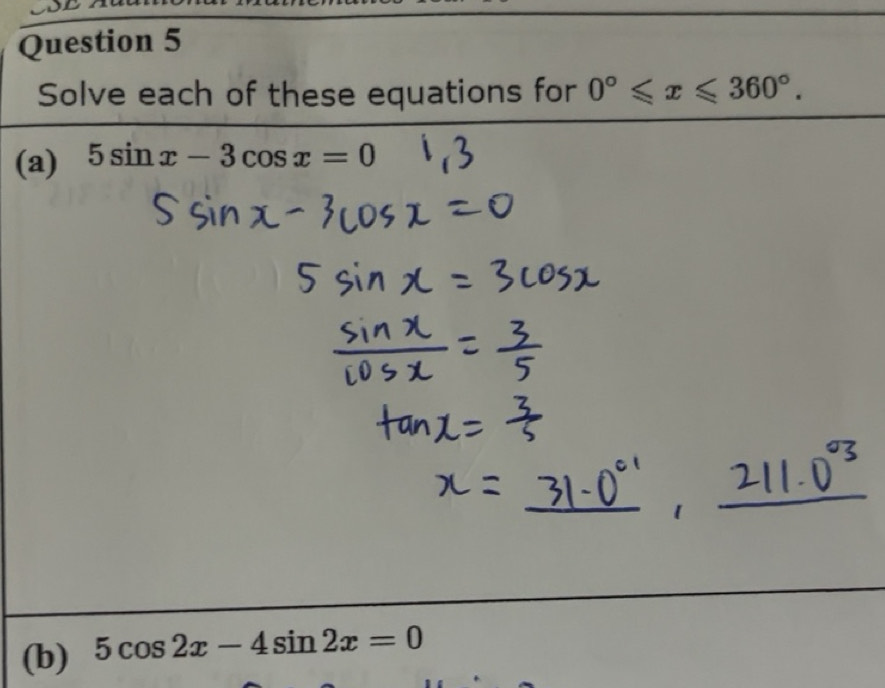 Question 5
Solve each of these equations for 0° ⩽ x ⩽ 360°.
(a) 5 sin x − 3 cos x = 0 1,3
5 sin x - 3 cos x = 0
5 sin x = 3 cos x
sin x / cos x = 3/5
tan x = 3/5
x = 31.0° 1 , 211.0° 3
(b) 5 cos 2x − 4 sin 2x = 0